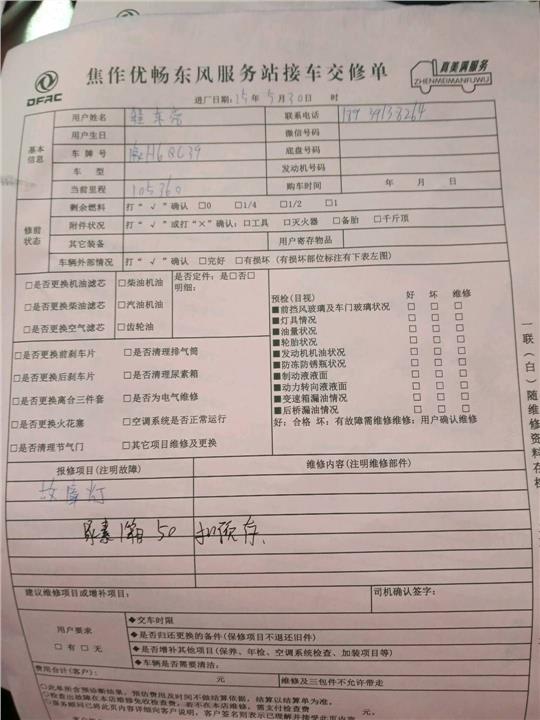 DFAC
焦作优畅东风服务站接车交修单
真美满服务
ZHENMEIMANFUWU
进厂日期：15年5月30日 时
基本信息
用户姓名 联系电话
用户生日 微信号码
车牌号 H6QC39 底盘号码
车型 发动机号码
当前里程 105360 购车时间 年 月 日
修前状态
剩余燃料 打“√”确认 □0 □1/4 □1/2 □1
附件状况 打“√”或打“×”确认：□工具 □灭火器 □备胎 □千斤顶
其它装备 用户寄存物品
车辆外部情况 打“√”确认 □完好 □有损坏（有损坏部位标注有下表左图）
□是否更换机油滤芯 □柴油机油
□是否更换柴油滤芯 □汽油机油
□是否更换空气滤芯 □齿轮油
是否定件：是□否□
明细：
□是否更换前刹车片 □是否清理排气筒
□是否更换后刹车片 □是否清理尿素箱
□是否更换离合三件套 □是否为电气维修
□是否更换火花塞 □空调系统是否正常运行
□是否清理节气门 □其它项目维修及更换
预检（目视） 好 坏 维修
■前挡风玻璃及车门玻璃状况 □ □ □
■灯具情况 □ □ □
■油量状况 □ □ □
■轮胎状况 □ □ □
■发动机机油状况 □ □ □
■防冻防锈瓶状况 □ □ □
■制动液液面 □ □ □
■动力转向液液面 □ □ □
■变速箱漏油情况 □ □ □
■后桥漏油情况 □ □ □
好：合格 坏：有故障需维修维修：用户确认维修
一联（白）随维修资料存档
报修项目（注明故障） 维修内容（注明维修部件）
故障灯
尿素箱 50 扣预存.
建议维修项目或增补项目： 司机确认签字：
用户要求
□有 □无
◆交车时限
◆是否归还更换的备件（保修项目不退还旧件）
◆是否增补其他项目（保养、年检、空调系统检查、加装项目等）
◆车辆是否需要清洁：
费用合计（客户）： 元 维修及三包件不允许带走
□此单所含预诊断结果，预估费用及时间不做结算依据，结算以结算单为准。
□检查出故障在本店维修免收检查费，若不在本店维修，需支付检查费 元。